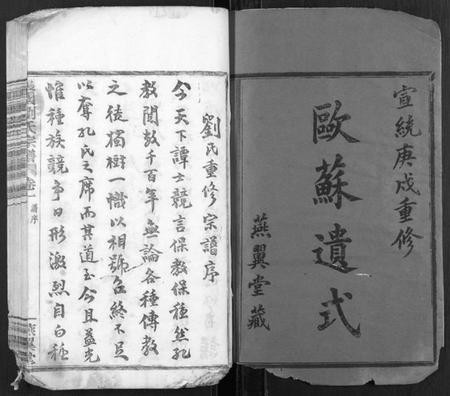 宣統庚戌重修
歐蘇遺式
燕翼堂藏
劉氏重修宗譜序
今天下譚士競言保教保種然孔
教閱數千百年無論各種傳教
之徒獨樹一幟以相號召終不足
以奪孔氏之席而其道至今且益光
惟種族競爭日形激烈自白種
劉氏宗譜
卷一
譜序
燕翼堂